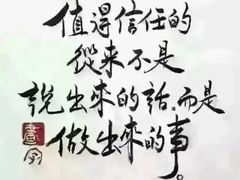 值得信任的
從来不是
說出來的話.而是
做出來的事。